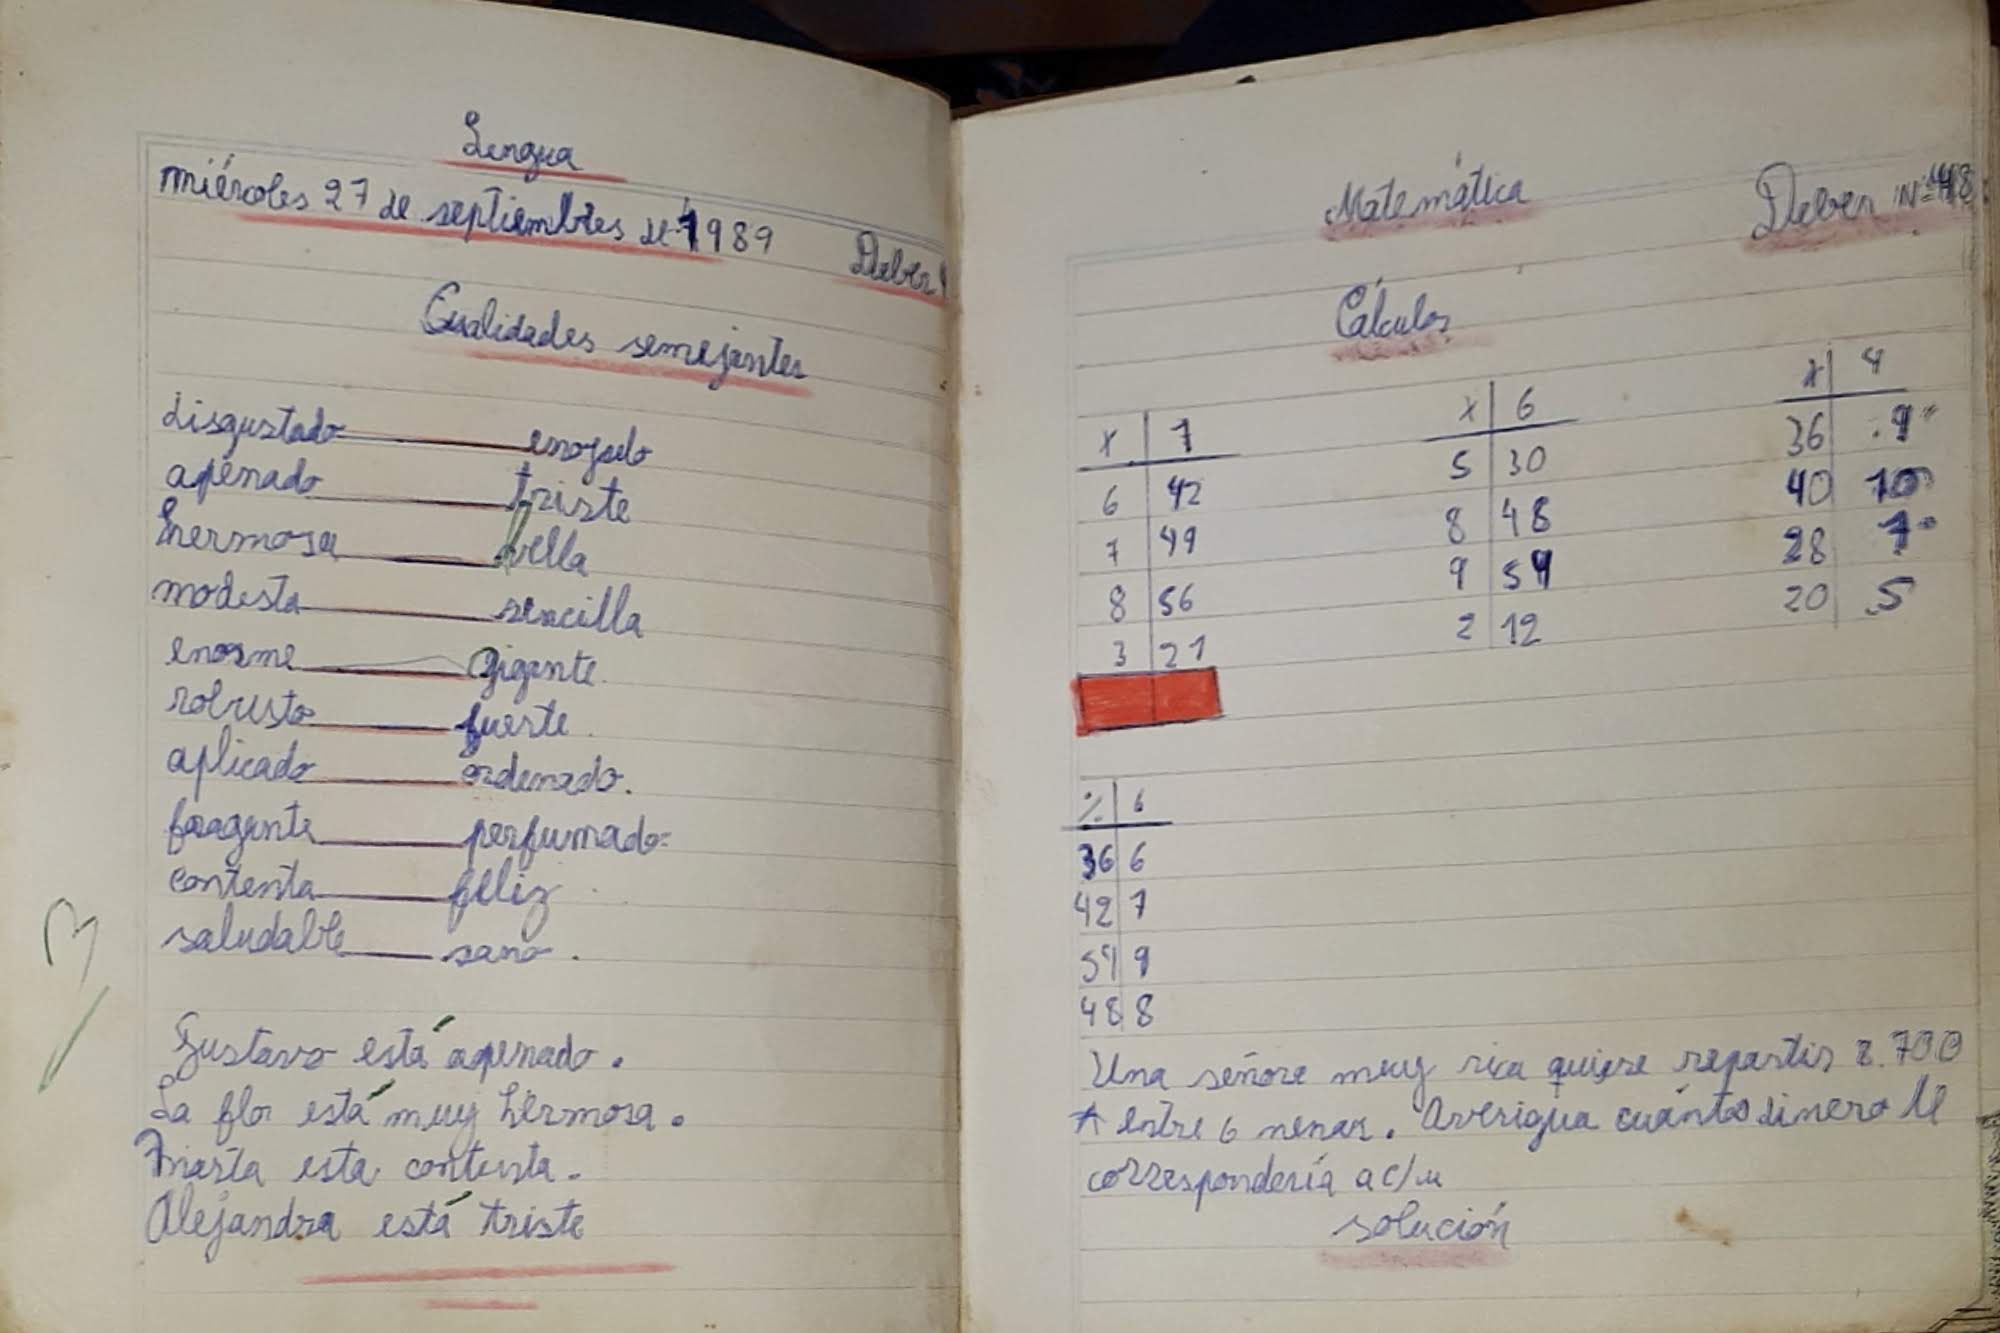 Lengua
miércoles 27 de septiembres de 1989 Deber
Cualidades semejantes
disgustado enojado
apenado triste
hermosa bella
modesta sencilla
enorme gigante.
robusto fuerte.
aplicado ordenado.
fragante perfumado.
contenta feliz.
saludable sano.
Gustavo está apenado.
La flor está muy hermosa.
Marta esta contenta.
Alejandra está triste
Matemática Deber Nº
Cálculos
x 7
6 42
7 49
8 56
3 21
x 6
5 30
8 48
9 54
2 12
x 4
36 9
40 10
28 7
20 5
% 6
36 6
42 7
54 9
48 8
Una señore muy rica quiere repartir 8.700
A entre 6 nenas. Averigua cuánto dinero le
correspondería a c/u
solución